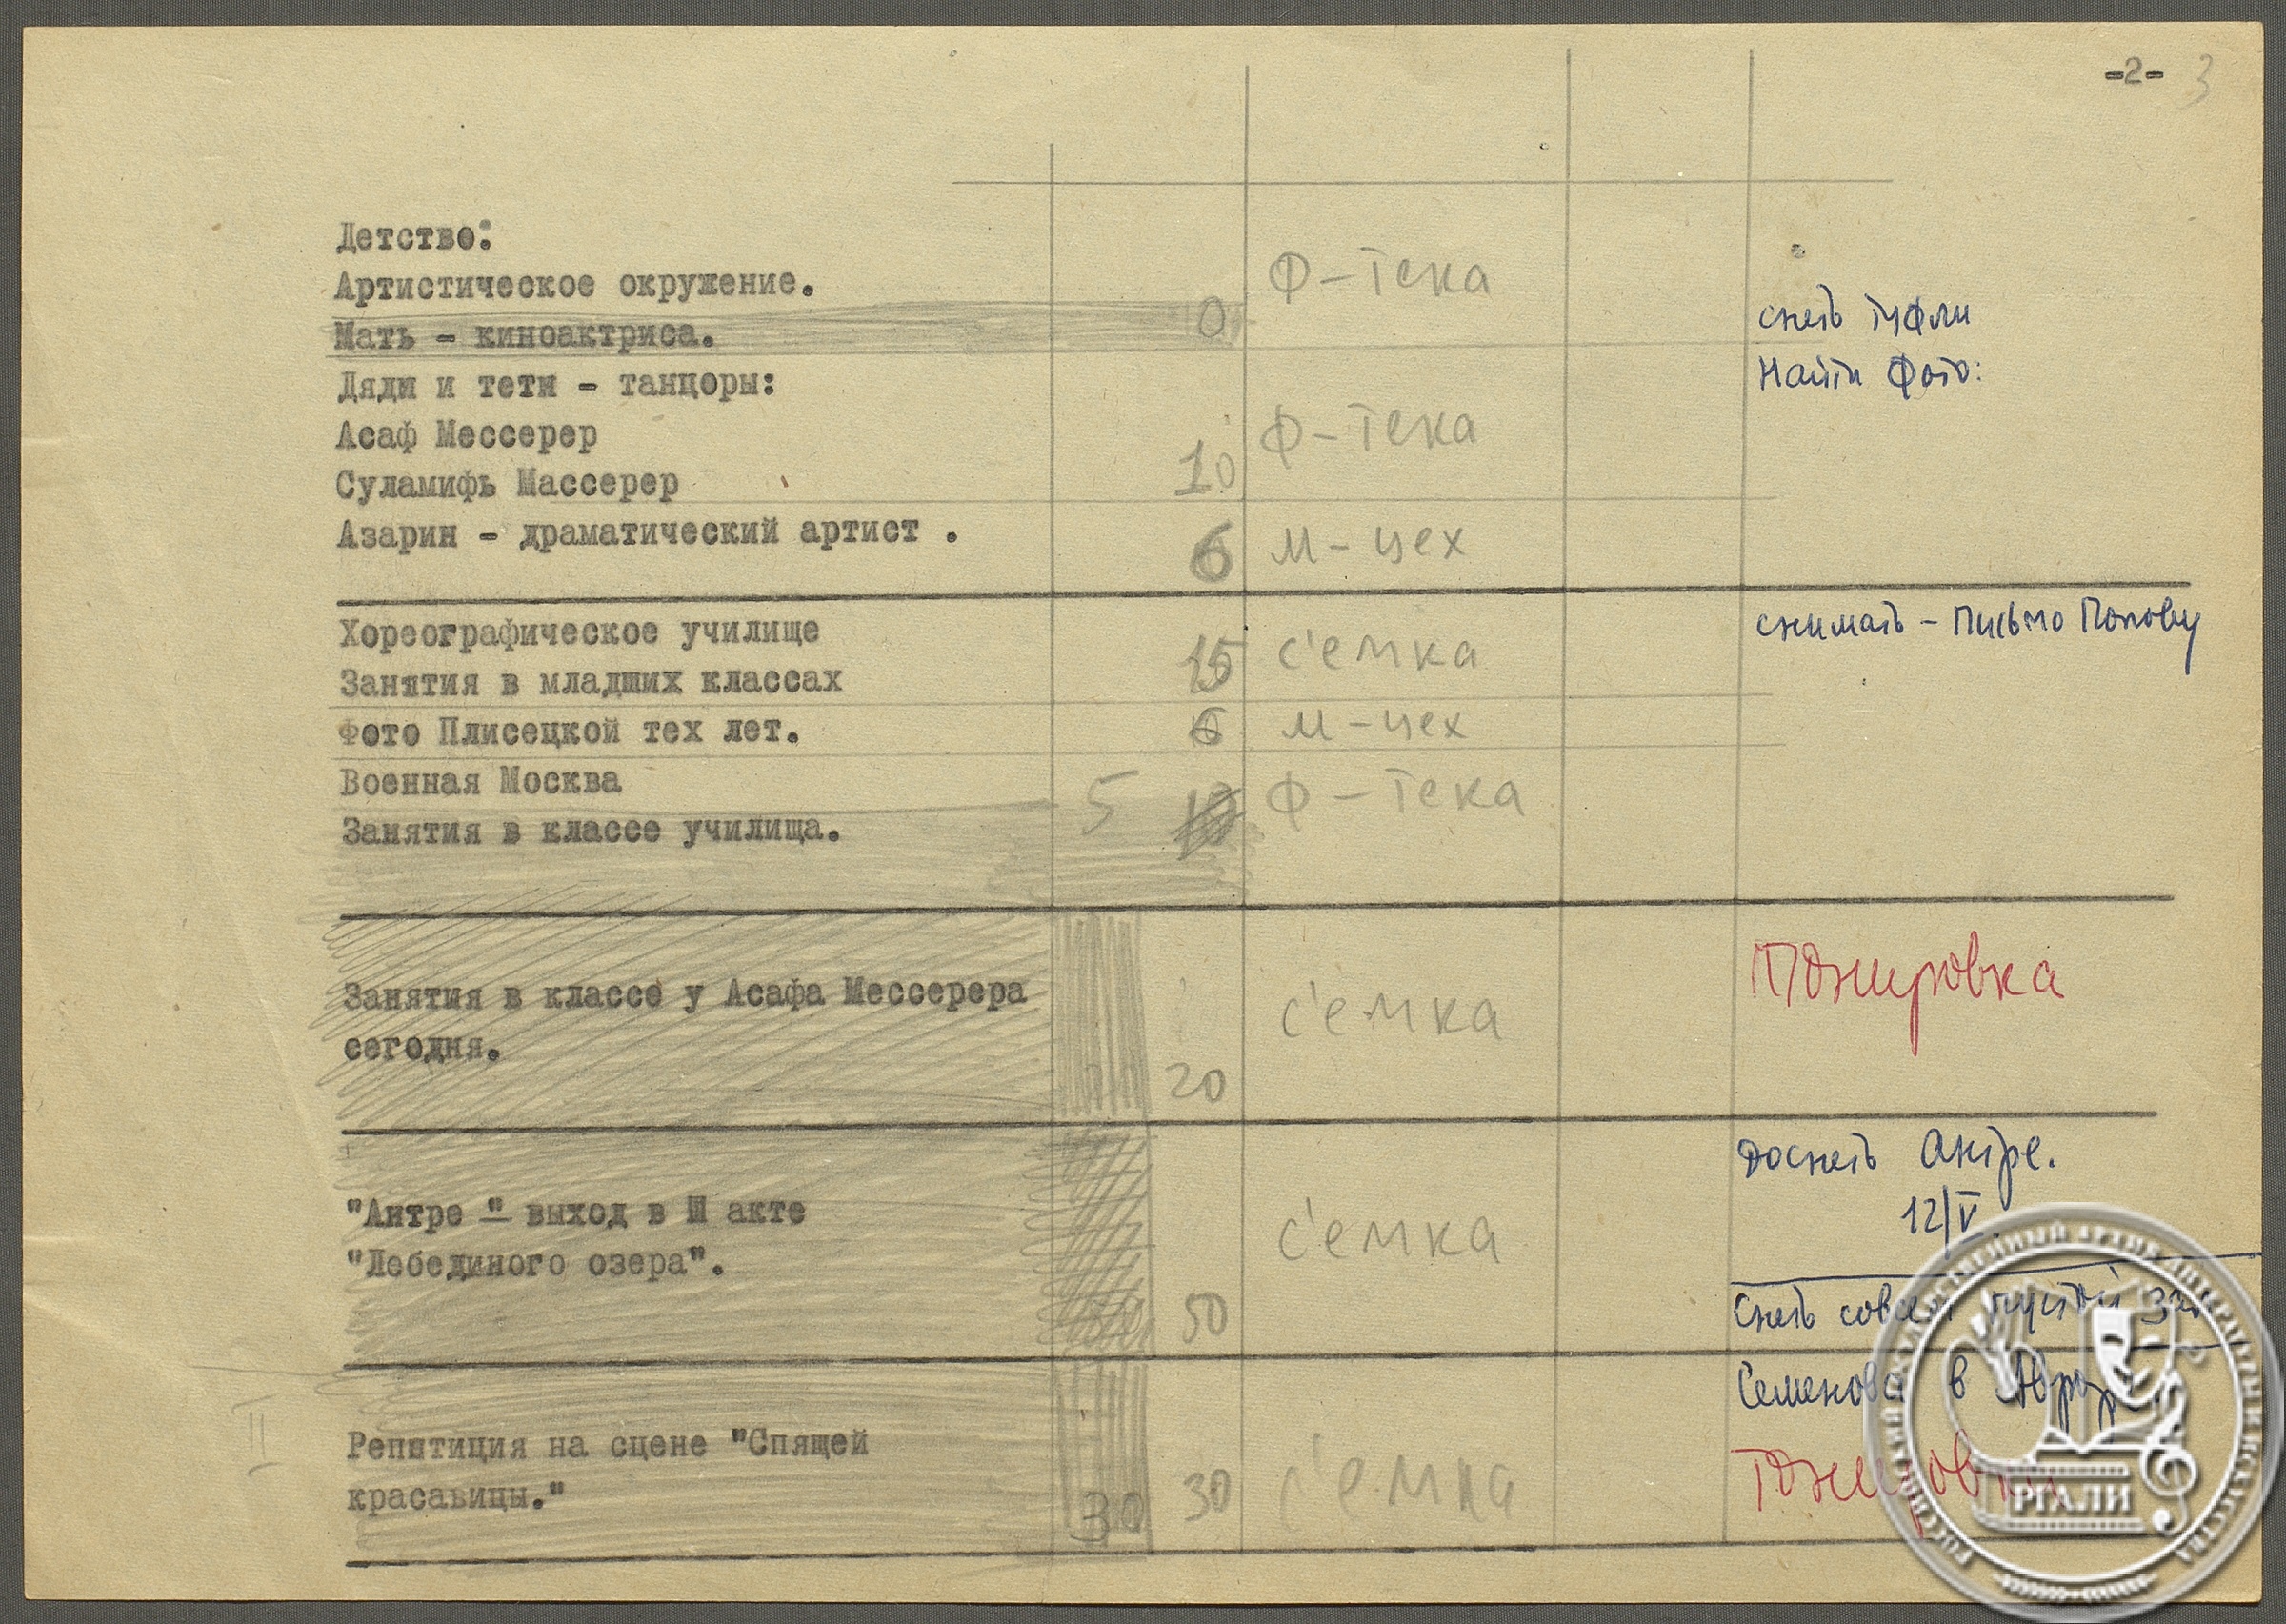 -2- 3
Детство:
Артистическое окружение.
Ф-тека
Мать - киноактриса.
0
снять туфли
Дяди и тети - танцоры:
Найти фото:
Асаф Мессерер
Ф-тека
Суламифь Массерер
10
Азарин - драматический артист .
6 м-цех
Хореографическое училище
снимать - письмо Попову
Занятия в младших классах
15 с'емка
Фото Плисецкой тех лет.
6 м-цех
Военная Москва
5 10 Ф-тека
Занятия в классе училища.
Занятия в классе у Асафа Мессерера
сегодня.
20 с'емка
"Антре " - выход в Ш акте
"Лебединого озера".
50 с'емка
Доснять Антре.
12/V
Снять совсем пустой зал
II
Репетиция на сцене "Спящей
красавицы."
30 30 с'емка
Семенова в
РГАЛИ